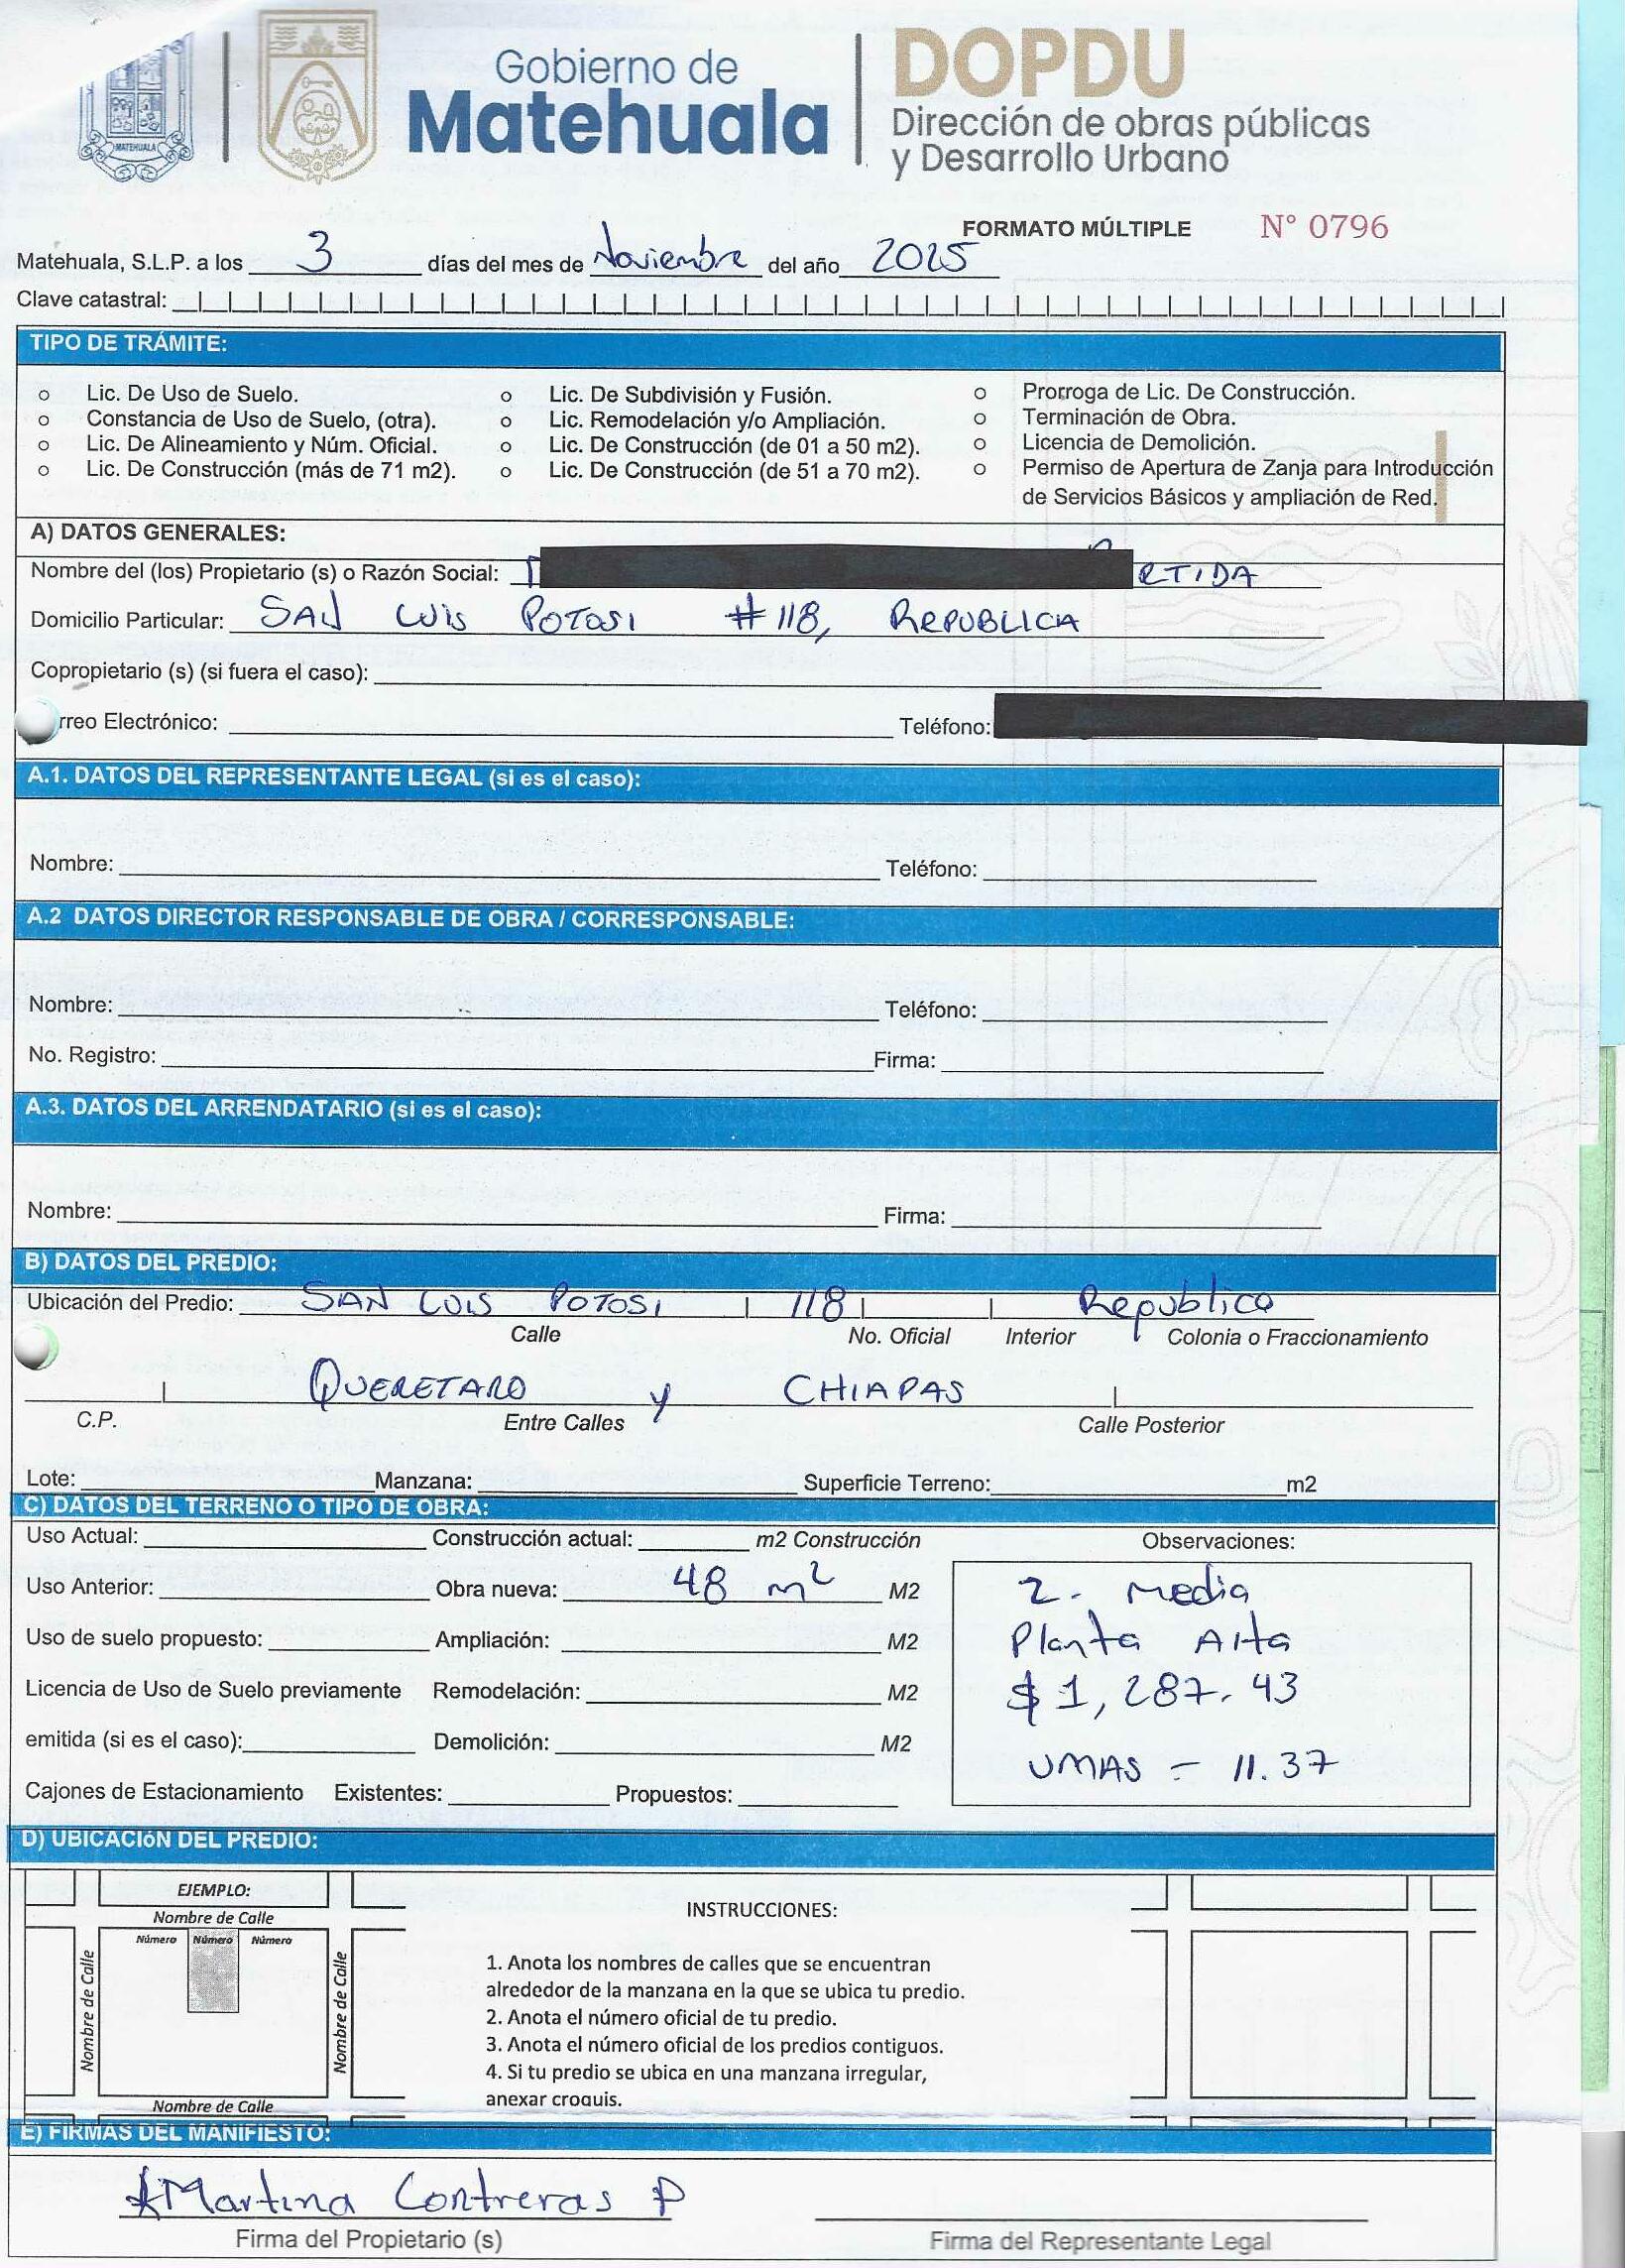 MATEHUALA
Gobierno de
Matehuala
DOPDU
Dirección de obras públicas
y Desarrollo Urbano
FORMATO MÚLTIPLE N° 0796
Matehuala, S.L.P. a los 3 días del mes de Noviembre del año 2025
Clave catastral:
TIPO DE TRÁMITE:
o Lic. De Uso de Suelo.
o Constancia de Uso de Suelo, (otra).
o Lic. De Alineamiento y Núm. Oficial.
o Lic. De Construcción (más de 71 m2).
o Lic. De Subdivisión y Fusión.
o Lic. Remodelación y/o Ampliación.
o Lic. De Construcción (de 01 a 50 m2).
o Lic. De Construcción (de 51 a 70 m2).
o Prorroga de Lic. De Construcción.
o Terminación de Obra.
o Licencia de Demolición.
o Permiso de Apertura de Zanja para Introducción
de Servicios Básicos y ampliación de Red.
A) DATOS GENERALES:
Nombre del (los) Propietario (s) o Razón Social: RTIDA
Domicilio Particular: SAN LUIS POTOSI #118, REPUBLICA
Copropietario (s) (si fuera el caso):
rreo Electrónico: Teléfono:
A.1. DATOS DEL REPRESENTANTE LEGAL (si es el caso):
Nombre: Teléfono:
A.2 DATOS DIRECTOR RESPONSABLE DE OBRA / CORRESPONSABLE:
Nombre: Teléfono:
No. Registro: Firma:
A.3. DATOS DEL ARRENDATARIO (si es el caso):
Nombre: Firma:
B) DATOS DEL PREDIO:
Ubicación del Predio: SAN LUIS POTOSI 118 Republica
Calle No. Oficial Interior Colonia o Fraccionamiento
QUERETARO y CHIAPAS
C.P. Entre Calles Calle Posterior
Lote: Manzana: Superficie Terreno: m2
C) DATOS DEL TERRENO O TIPO DE OBRA:
Uso Actual: Construcción actual: m2 Construcción
Uso Anterior: Obra nueva: 48 m² M2
Uso de suelo propuesto: Ampliación: M2
Licencia de Uso de Suelo previamente Remodelación: M2
emitida (si es el caso): Demolición: M2
Cajones de Estacionamiento Existentes: Propuestos:
Observaciones:
2. Media
Planta Alta
$1,287.43
UMAS = 11.37
D) UBICACIÓN DEL PREDIO:
EJEMPLO:
Nombre de Calle
Número Número Número
Nombre de Calle
Nombre de Calle
Nombre de Calle
INSTRUCCIONES:
1. Anota los nombres de calles que se encuentran
alrededor de la manzana en la que se ubica tu predio.
2. Anota el número oficial de tu predio.
3. Anota el número oficial de los predios contiguos.
4. Si tu predio se ubica en una manzana irregular,
anexar croquis.
E) FIRMAS DEL MANIFIESTO:
Martina Contreras P
Firma del Propietario (s) Firma del Representante Legal